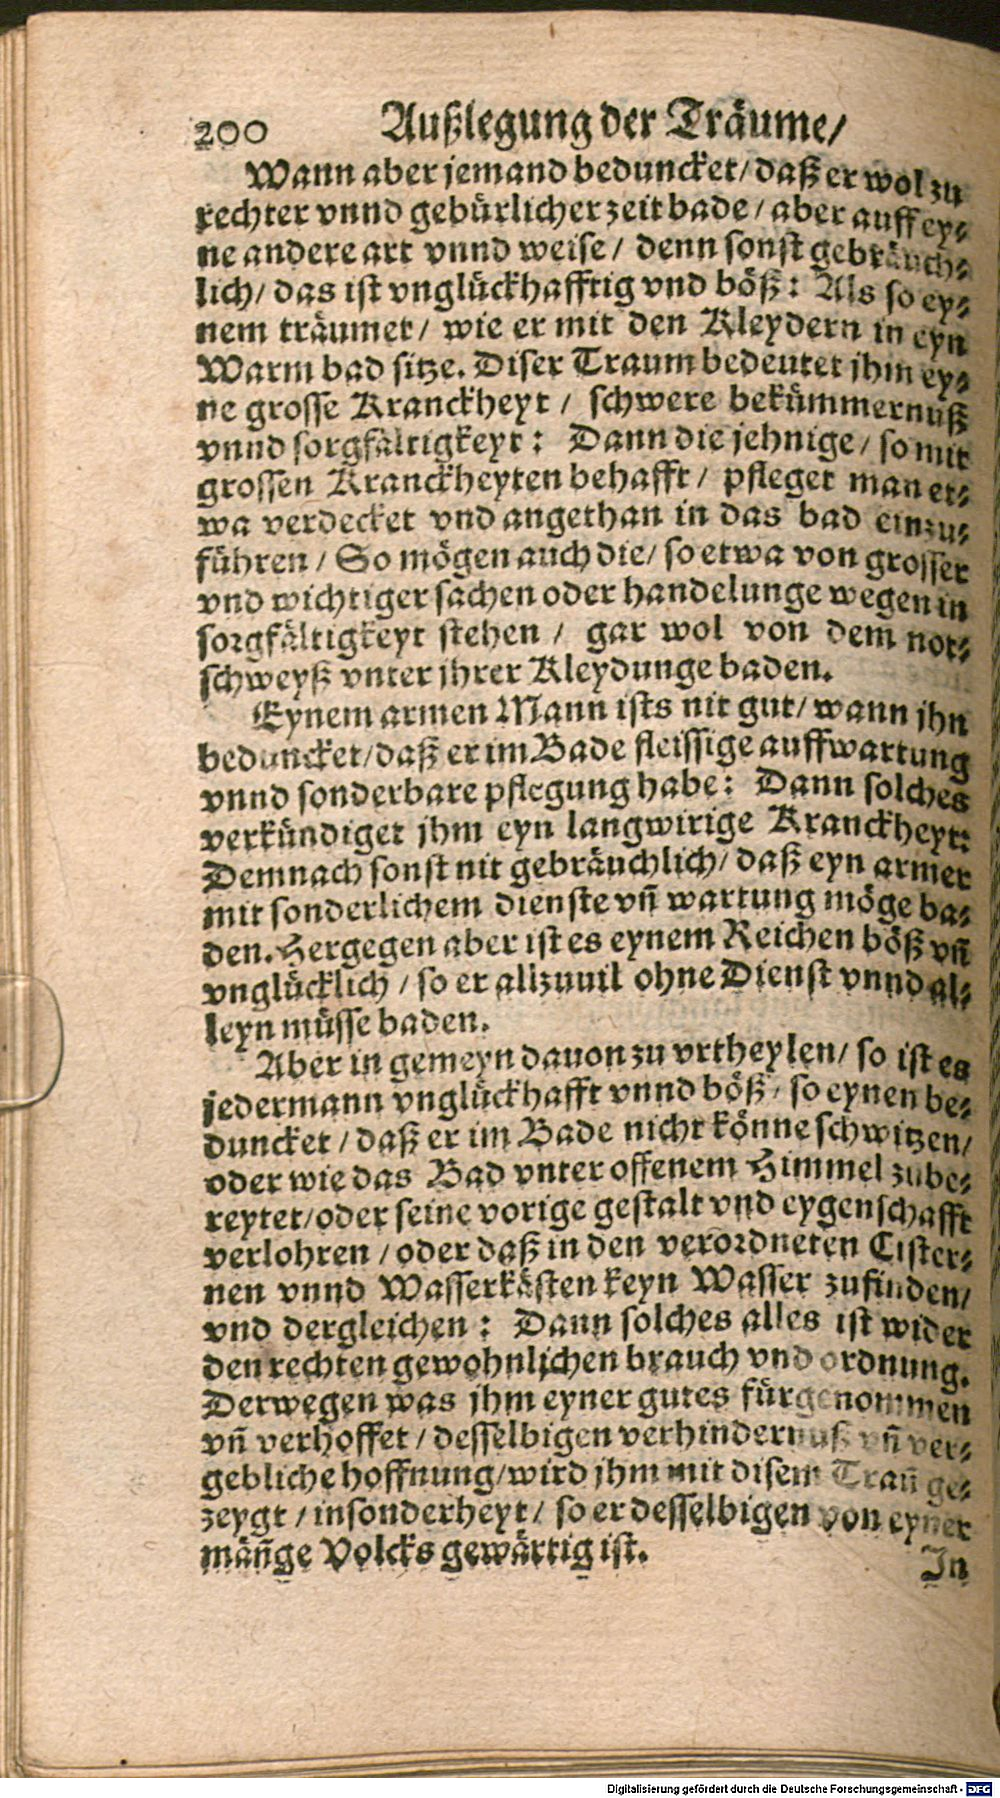 200 Außlegung der Träume/
Wann aber jemand beduncket/ daß er wol zu
rechter vnnd gebürlicher zeit bade / aber auff ey⸗
ne andere art vnnd weise / denn sonst gebräuch⸗
lich/ das ist vnglückhafftig vnd böß: Als so ey⸗
nem träumet / wie er mit den Kleydern in eyn
Warm bad sitze. Diser Traum bedeutet jhm ey⸗
ne grosse Kranckheyt / schwere bekümmernuß
vnnd sorgfältigkeyt: Dann die jehnige / so mit
grossen Kranckheyten behafft / pfleget man et⸗
wa verdecket vnd angethan in das bad einzu⸗
führen / So mögen auch die/ so etwa von grosser
vnd wichtiger sachen oder handelunge wegen in
sorgfältigkeyt stehen / gar wol von dem not⸗
schweyß vnter jhrer Kleydunge baden.
Eynem armen Mann ists nit gut/ wann jhn
beduncket/ daß er im Bade fleissige auffwartung
vnnd sonderbare pflegung habe: Dann solches
verkündiget jhm eyn langwirige Kranckheyt:
Demnach sonst nit gebräuchlich/ daß eyn armer
mit sonderlichem dienste vñ wartung möge ba⸗
den. Hergegen aber ist es eynem Reichen böß vñ
vnglücklich / so er allzuuil ohne Dienst vnnd al⸗
leyn müsse baden.
Aber in gemeyn dauon zu vrtheylen/ so ist es
jedermann vnglückhafft vnnd böß / so eynen be⸗
duncket / daß er im Bade nicht könne schwitzen/
oder wie das Bad vnter offenem Himmel zube⸗
reytet/ oder seine vorige gestalt vnd eygenschafft
verlohren / oder daß in den verordneten Cister⸗
nen vnnd Wasserkästen keyn Wasser zufinden/
vnd dergleichen: Dann solches alles ist wider
den rechten gewohnlichen brauch vnd ordnung.
Derwegen was jhm eyner gutes fürgenommen
vñ verhoffet / desselbigen verhindernuß vñ ver⸗
gebliche hoffnung/ wird jhm mit disem Trauñ ge⸗
zeygt / insonderheyt / so er desselbigen von eyner
mäñge Volcks gewärtig ist.
In
Digitalisierung gefördert durch die Deutsche Forschungsgemeinschaft - DFG